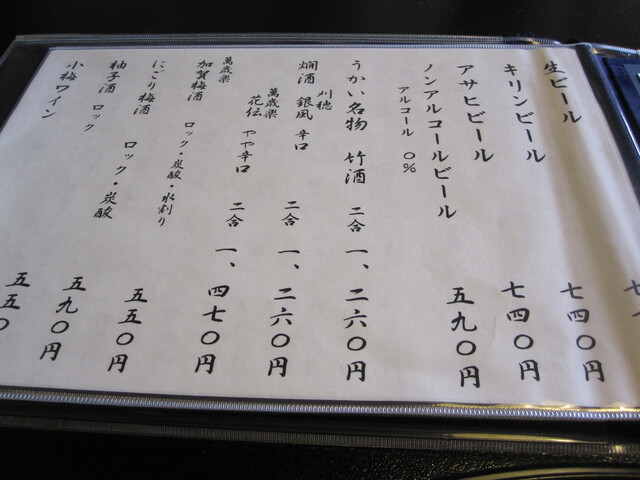 生ビール
キリンビール 七四〇円
アサヒビール 七四〇円
ノンアルコールビール 五九〇円
アルコール 〇%
うかい名物 竹酒 二合 一、二六〇円
燗酒 刈穂 銀風 辛口 二合 一、二六〇円
萬歳楽 花伝 やや辛口 二合 一、四七〇円
萬歳楽
加賀梅酒 ロック・炭酸・水割り 五五〇円
にごり梅酒 ロック・炭酸 五九〇円
柚子酒 ロック 五五〇
小梅ワイン